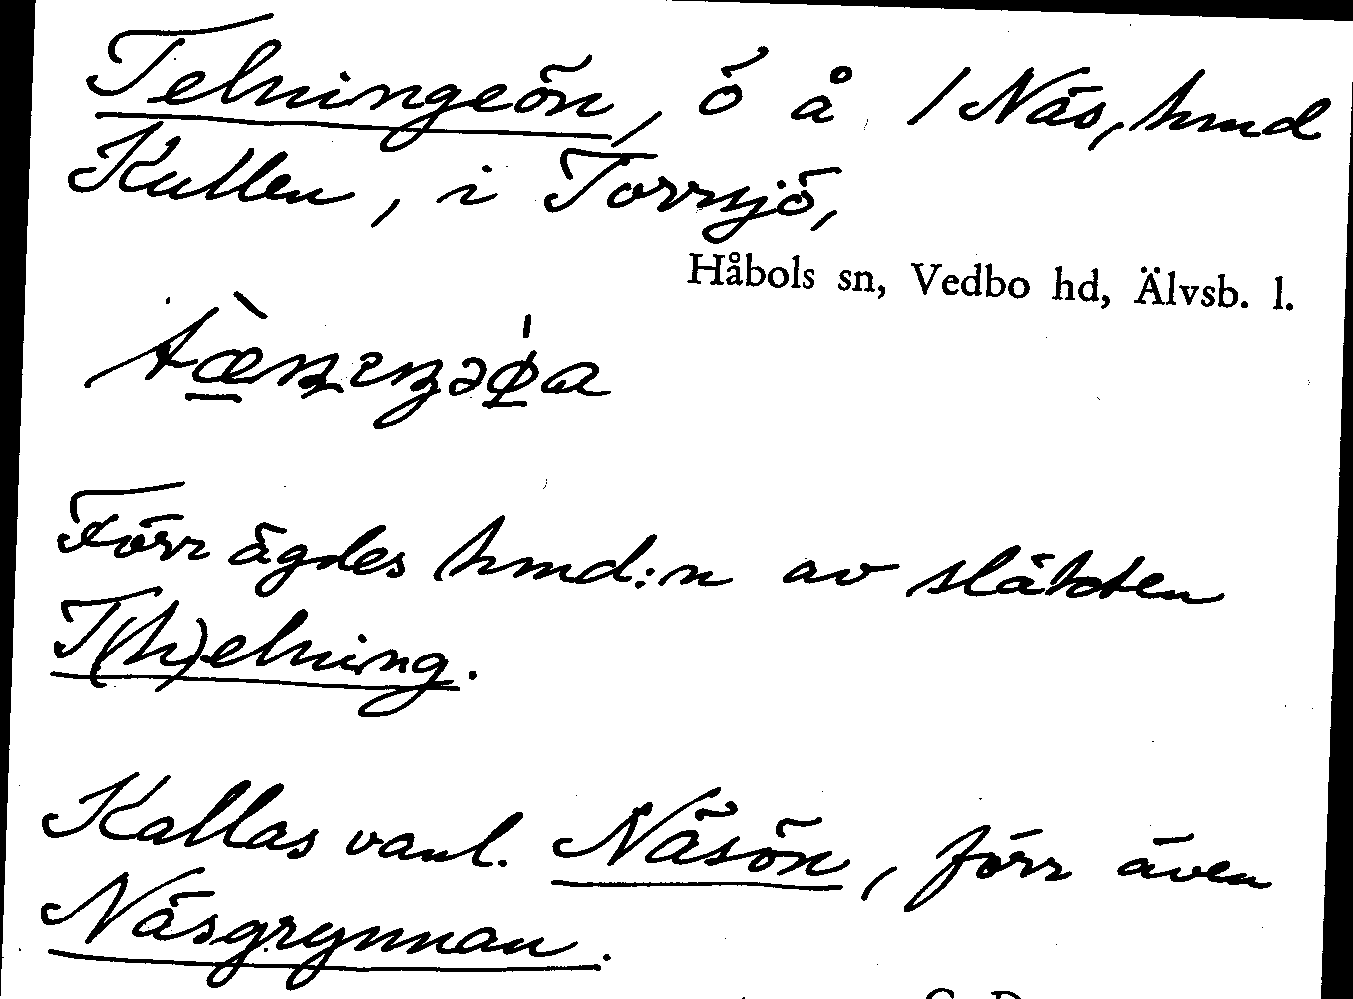 Telningeön, ö å 1 Näs, hmd
Kullen, i Torrsjö,
Håbols sn, Vedbo hd, Älvsb. l.
Förr ägdes hmd:n av släkten
T(h)elning.
Kallas vanl. Näsön, förr även
Näsgrynnan.